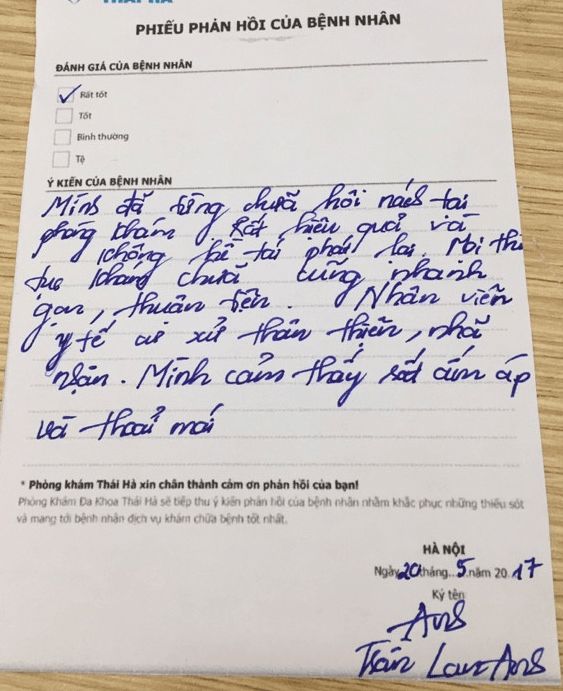 THÁI HÀ
PHIẾU PHẢN HỒI CỦA BỆNH NHÂN
ĐÁNH GIÁ CỦA BỆNH NHÂN
Rất tốt
Tốt
Bình thường
Tệ
Ý KIẾN CỦA BỆNH NHÂN
Mình đã từng chữa hôi nách tại
phòng khám rất hiệu quả và
không hề tái phát lại. Mọi thủ
tục khám chữa cũng nhanh
gọn, thuận tiện. Nhân viên
y tế cư xử thân thiện, nhã
nhặn. Mình cảm thấy rất ấm áp
và thoải mái
* Phòng khám Thái Hà xin chân thành cảm ơn phản hồi của bạn!
Phòng Khám Đa Khoa Thái Hà sẽ tiếp thu ý kiến phản hồi của bệnh nhân nhằm khắc phục những thiếu sót
và mang tới bệnh nhân dịch vụ khám chữa bệnh tốt nhất.
HÀ NỘI
Ngày 20 tháng...5.năm 20.17
Ký tên
Anh
Trần Lan Anh